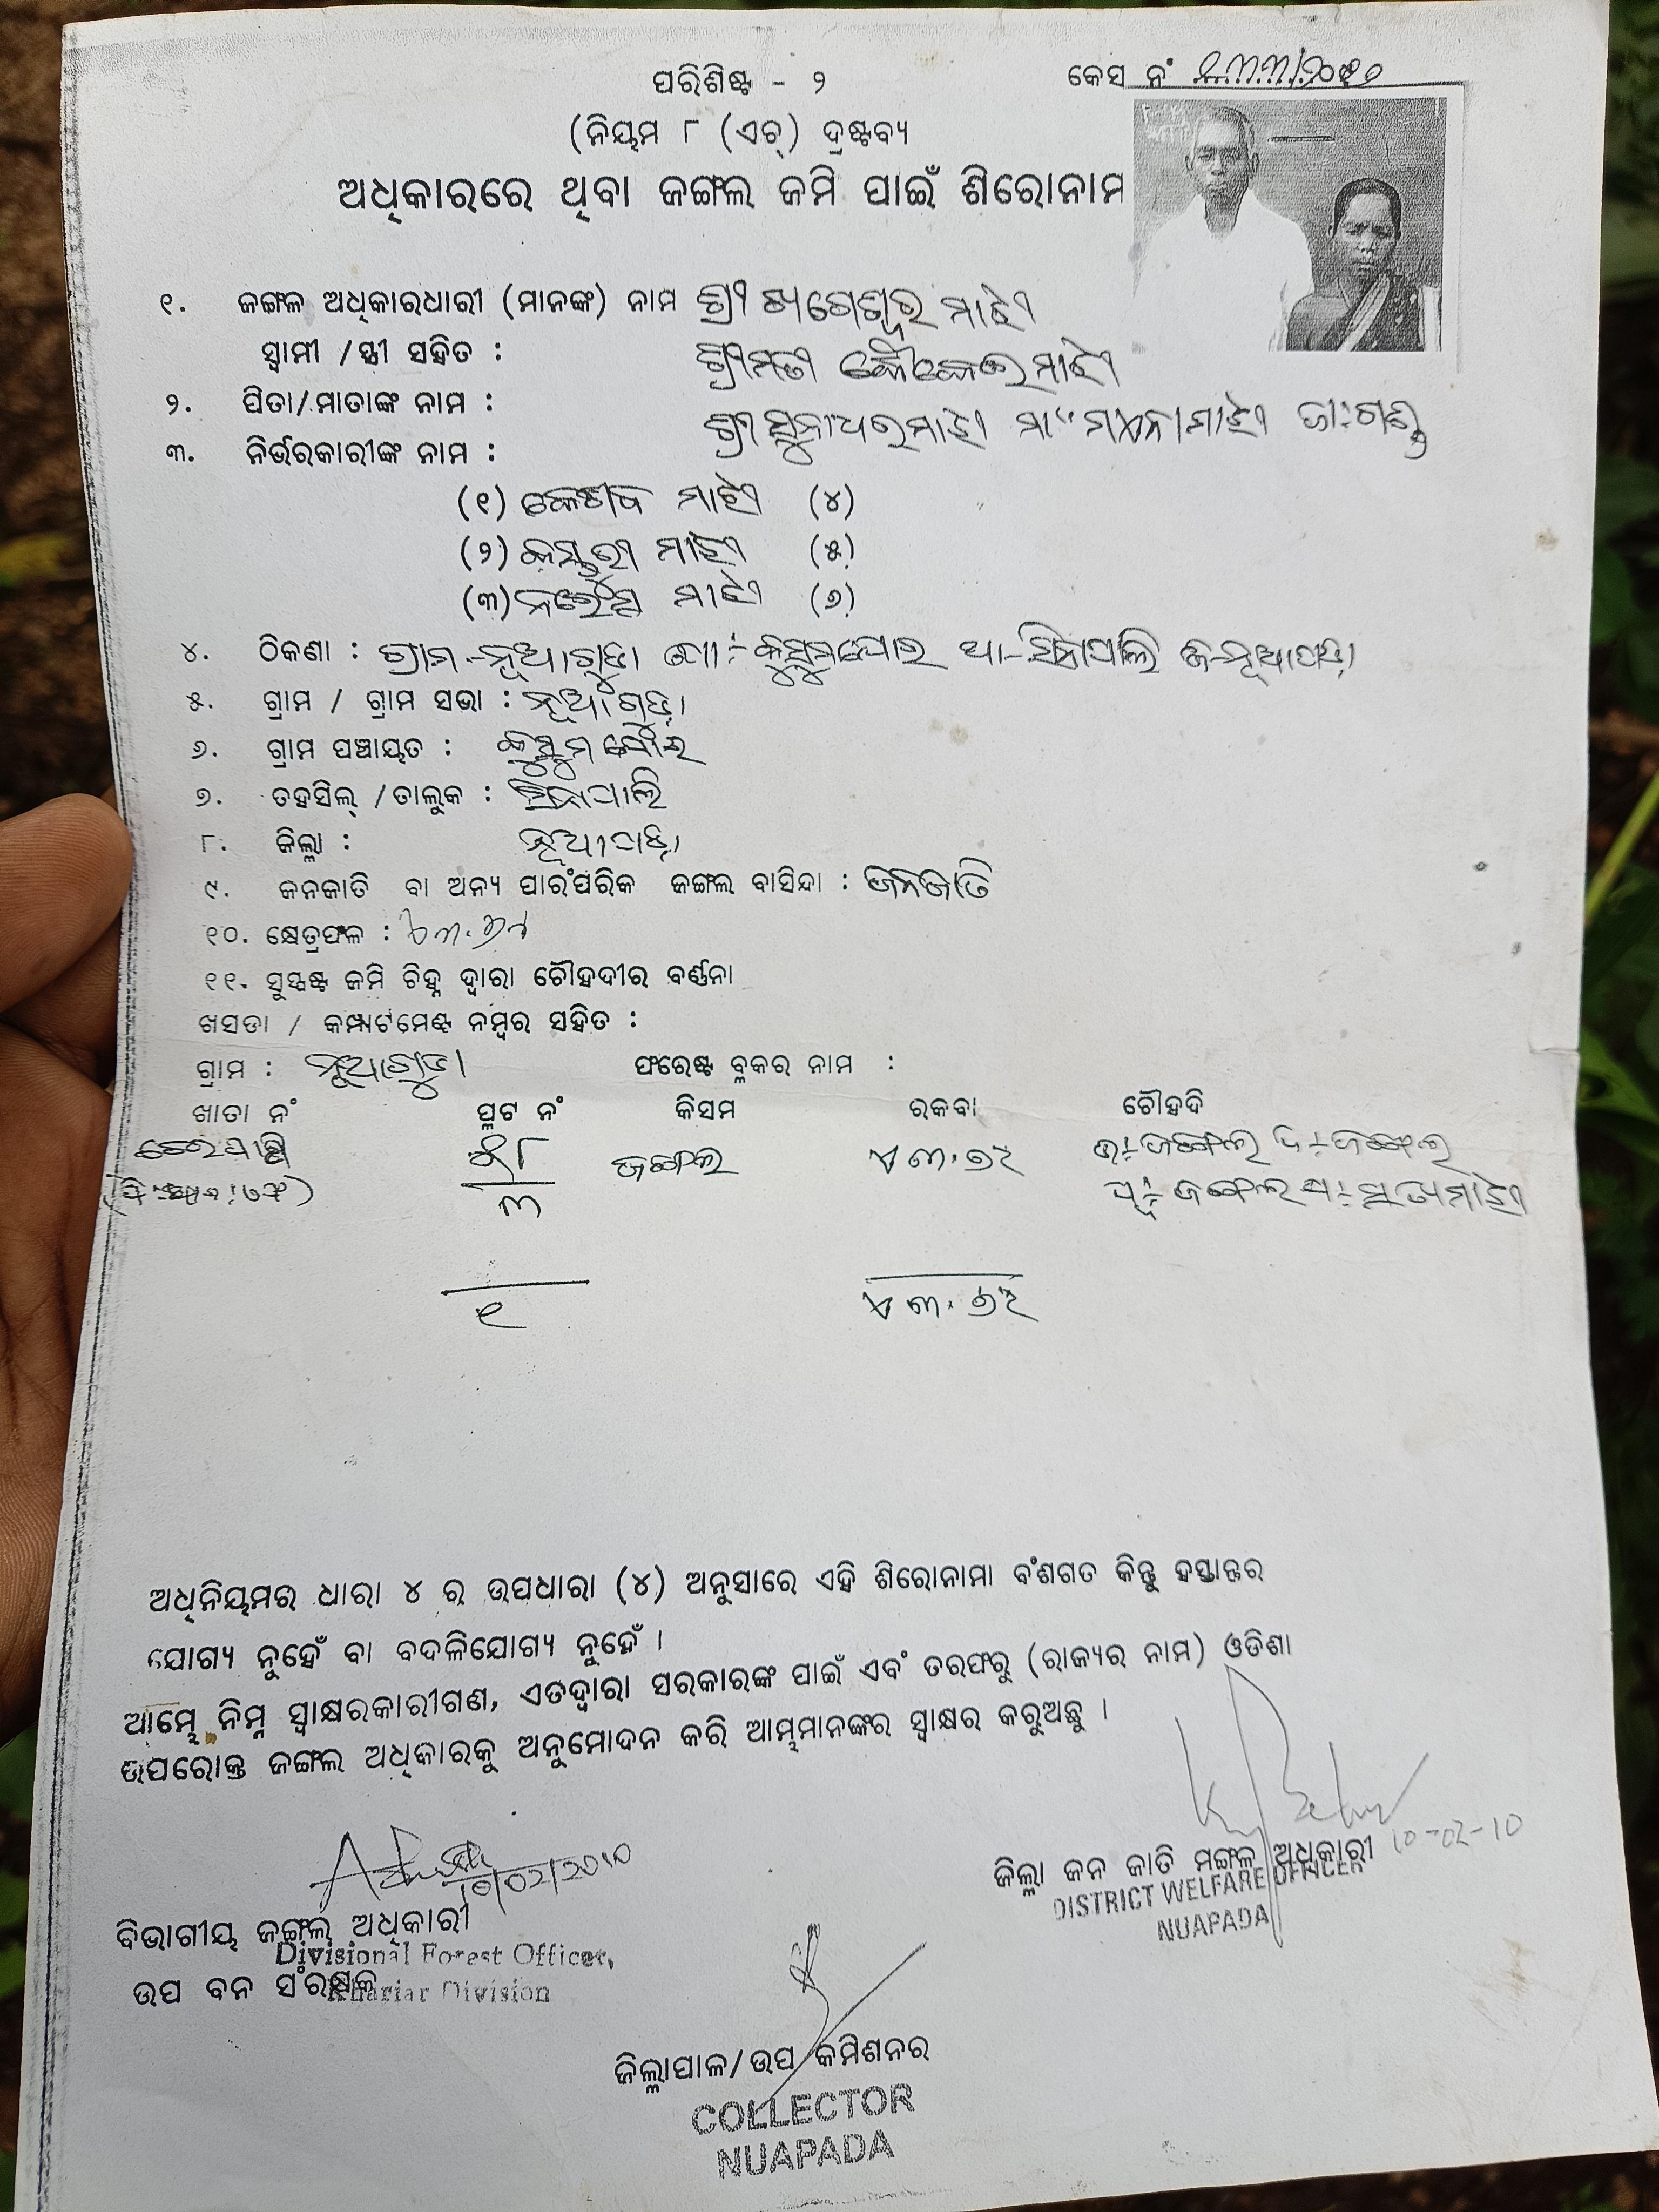 ପରିଶିଷ୍ଟ - ୨
କେସ ନଂ
(ନିୟମ ୮ (ଏଚ୍) ଦ୍ରଷ୍ଟବ୍ୟ
ଅଧିକାରରେ ଥିବା ଜଙ୍ଗଲ ଜମି ପାଇଁ ଶିରୋନାମ
୧. ଜଙ୍ଗଲ ଅଧିକାରଧାରୀ (ମାନଙ୍କ) ନାମ ଶ୍ରୀ ଖଗେଶ୍ୱର ମାଝୀ
ସ୍ୱାମୀ /ସ୍ତ୍ରୀ ସହିତ : ଶ୍ରୀମତୀ କୌକେଇ ମାଝୀ
୨. ପିତା/ମାତାଙ୍କ ନାମ : ଶ୍ରୀ ସୁନାଧର ମାଝୀ
୩. ନିର୍ଭରକାରୀଙ୍କ ନାମ :
(୧) କେଶବ ମାଝୀ (୪)
(୨) କସ୍ତୁରୀ ମାଝୀ (୫)
(୩) ମାଝୀ (୬)
୪. ଠିକଣା : ଗ୍ରାମ-ନୂଆଗୁଡା ପୋ:- ଥା-ସିନାପାଲି ଜି-ନୂଆପଡ଼ା
୫. ଗ୍ରାମ / ଗ୍ରାମ ସଭା : ନୂଆଗୁଡ଼ା
୬. ଗ୍ରାମ ପଞ୍ଚାୟତ :
୭. ତହସିଲ୍ /ତାଲୁକ : ସିନାପାଲି
୮. ଜିଲ୍ଲା : ନୂଆପଡ଼ା
୯. ଜନଜାତି ବା ଅନ୍ୟ ପାରଂପରିକ ଜଙ୍ଗଲ ବାସିନ୍ଦା : ଜନଜାତି
୧୦. କ୍ଷେତ୍ରଫଳ :
୧୧. ସୁସ୍ପଷ୍ଟ ଜମି ଚିହ୍ନ ଦ୍ୱାରା ଚୌହଦୀର ବର୍ଣ୍ଣନା
ଖସଡା / କମ୍ପାର୍ଟମେଣ୍ଟ ନମ୍ବର ସହିତ :
ଗ୍ରାମ : ନୂଆଗୁଡା ଫରେଷ୍ଟ ବ୍ଳକର ନାମ :
ଖାତା ନଂ ପ୍ଲଟ ନଂ କିସମ ରକବା ଚୌହଦି
ଜଙ୍ଗଲ ଉ:-ଜଙ୍ଗଲ ଦ:-ଜଙ୍ଗଲ
୩ ପୂ:- ଜଙ୍ଗଲ ପ:- ସତ୍ୟ ମାଝୀ
୧
ଅଧିନିୟମର ଧାରା ୪ ର ଉପଧାରା (୪) ଅନୁସାରେ ଏହି ଶିରୋନାମା ବଂଶଗତ କିନ୍ତୁ ହସ୍ତାନ୍ତର
ଯୋଗ୍ୟ ନୁହେଁ ବା ବଦଳିଯୋଗ୍ୟ ନୁହେଁ ।
ଆମ୍ଭେ ନିମ୍ନ ସ୍ୱାକ୍ଷରକାରୀଗଣ, ଏତଦ୍ୱାରା ସରକାରଙ୍କ ପାଇଁ ଏବଂ ତରଫରୁ (ରାଜ୍ୟର ନାମ) ଓଡିଶା
ଉପରୋକ୍ତ ଜଙ୍ଗଲ ଅଧିକାରକୁ ଅନୁମୋଦନ କରି ଆମ୍ଭମାନଙ୍କର ସ୍ୱାକ୍ଷର କରୁଅଛୁ ।
10/02/2010
10-02-10
ଜିଲ୍ଲା ଜନ ଜାତି ମଙ୍ଗଳ ଅଧିକାରୀ
DISTRICT WELFARE OFFICER
NUAPADA
ବିଭାଗୀୟ ଜଙ୍ଗଲ ଅଧିକାରୀ
Divisional Forest Officer,
ଉପ ବନ ସଂରକ୍ଷକ
Khariar Division
ଜିଲ୍ଲାପାଳ/ଉପ କମିଶନର
COLLECTOR
NUAPADA